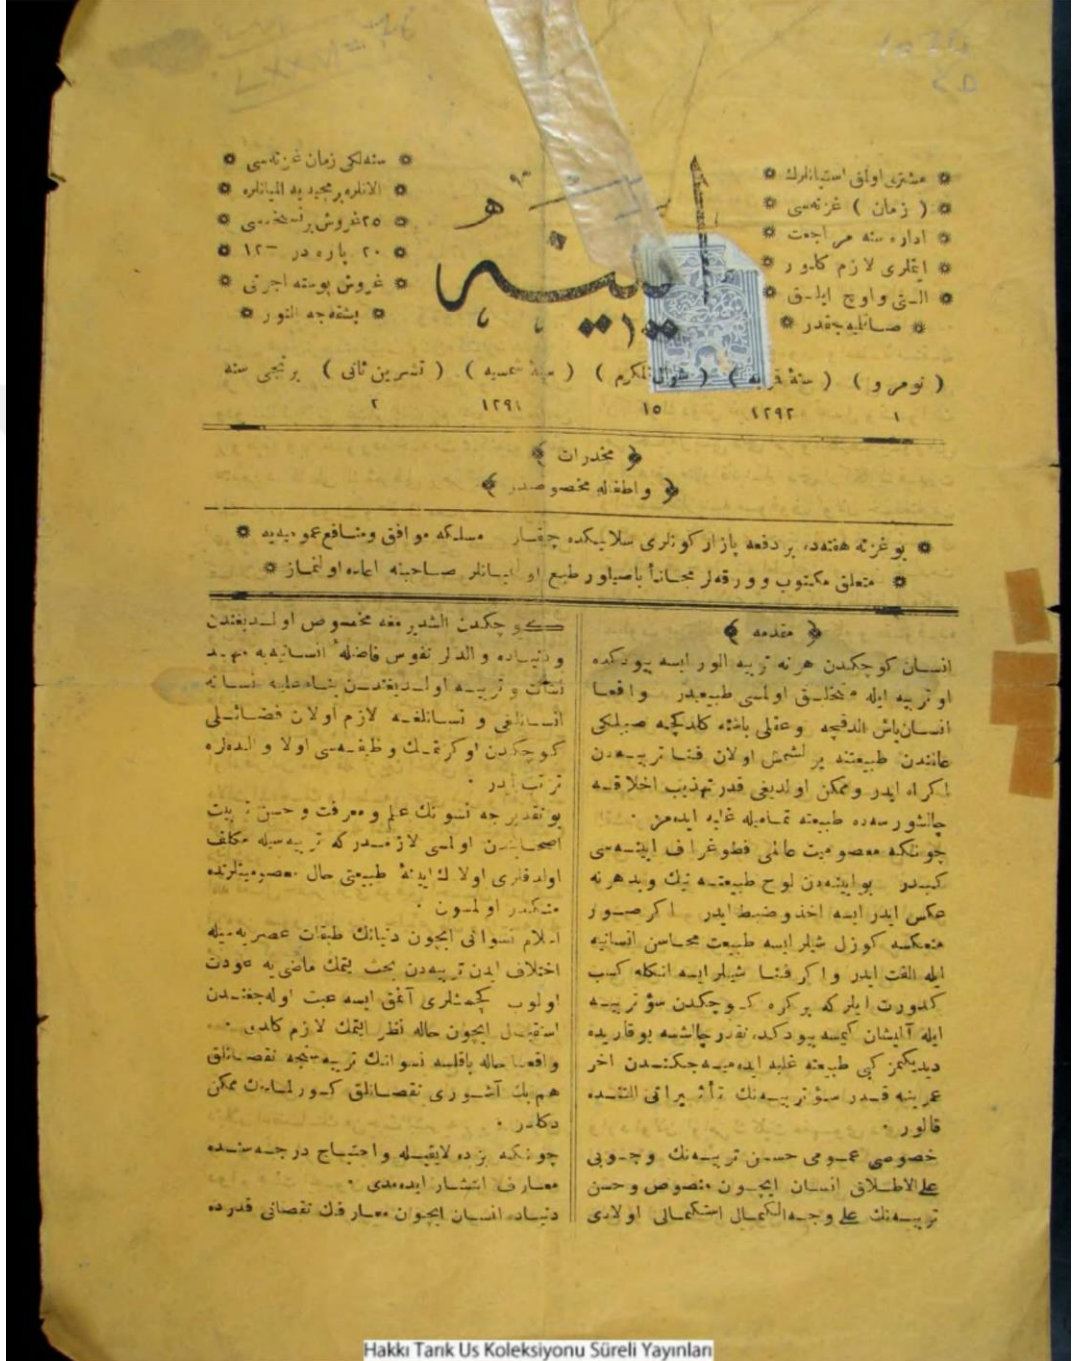 مشتری اولمق استیانلرك
( زمان ) غزته‌سی
اداره سنه مراجعت
ایتملری لازم كلور
التی واوچ ایلق
صاتلیه‌جقدر
سنه‌لكی زمان غزته‌سی
الانلره بر مجیدیه المیانلره
٢٥ غروش بر نسخه‌سی
٢٠ پاره در
غروش پوسته اجرتی
بشقه‌جه النور
( نومرو ) ( سنهٔ قمریه ) ( شوال المكرم ) ( سنهٔ شمسیه ) ( تشرین ثانی ) برنجی سنه
١ ١٢٩٢ ١٥ ١٢٩١ ٢
﴿ مخدرات ﴾
﴿ واطفاله مخصوصدر ﴾
بو غزته هفته‌ده بر دفعه پازار كونلری سلانیكده چیقار مسلكه موافق ومنافع عمومیه‌یه
متعلق مكتوب وورقه‌لر مجاناً باصیلور طبع اولنمیانلر صاحبنه اعاده اولنماز
﴿ مقدمه ﴾
انسان كوچكدن هر نه تربیه الور ایسه بیودكده
او تربیه ایله متخلق اولمسی طبیعیدر واقعا
انسان یاش الدقچه وعقلی باشنه كلدكچه صبیلكی
عالمندن طبیعتنه یرلشمش اولان فنا تربیه‌دن
اكراه ایدر وممكن اولدیغی قدر تهذیب اخلاقه
چالشور سه‌ده طبیعته تمامیله غلبه ایده‌مز ٠
چونكه معصومیت عالمی فطوغراف آیینه‌سی
كبیدر بو آیینه‌دن لوح طبیعته نیك وبد هر نه
عكس ایدر ایسه اخذ وضبط ایدر اكر صور
منعكسه كوزل شیلر ایسه طبیعت محاسن انسانیه
ایله الفت ایدر واكر فنا شیلر ایسه انكله كسب
كدورت ایلر كه بر كره كوچكدن سؤ تربیه
ایله آلیشان كیمسه بیودكده نقدر چالشسه یوقاریده
دیدیكمز كبی طبیعته غلبه ایده‌میه‌جكندن اخر
عمرینه قدر سؤ تربیه‌نك تأثیراتی التنده
قالور ٠
خصوصی عمومی حسن تربیه‌نك وجوبی
علی‌الاطلاق انسان ایچون منصوص وحسن
تربیه‌نك علی وجه‌الكمال استكمالی اولادی
كوچكدن الشدیرمغه مخصوص اولدیغندن
ودنیاده والدلر نفوس فاضلهٔ انسانیه‌یه مهد
نشأت وتربیه اولدیغندن بناء علیه نسانه
انسانلغی ونسانلغه لازم اولان فضائلی
كوچكدن اوكرتمك وظیفه‌سی اولا والده‌لره
ترتب ایدر ٠
بو تقدیرجه نسوانك علم ومعرفت وحسن تربیت
اصحابندن اولمسی لازمدر كه تربیه‌سیله مكلف
اولدقلری اولادك آیینهٔ طبیعتی حال معصومیتلرنده
متكدر اولمسون ٠
اسلام نسوانی ایچون دنیانك طبقات عصریه‌سیله
اختلاف ایدن تربیه‌دن بحث ایتمك ماضی‌یه عودت
اولوب كچمشلری آكمق ایسه عبث اوله‌جغندن
استقبال ایچون حاله نظر ایتمك لازم كلدی ٠
واقعا حاله باقلسه نسوانك تربیه‌سنجه نقصانلق
هم پك آشوری نقصانلق كورلمامك ممكن
دكلدر ٠
چونكه بزده لایقیله واحتیاج درجه‌سنده
معارف انتشار ایده‌مدی ٠
دنیاده انسان ایچون معارفك نقصانی قدرده
Hakkı Tarık Us Koleksiyonu Süreli Yayınları